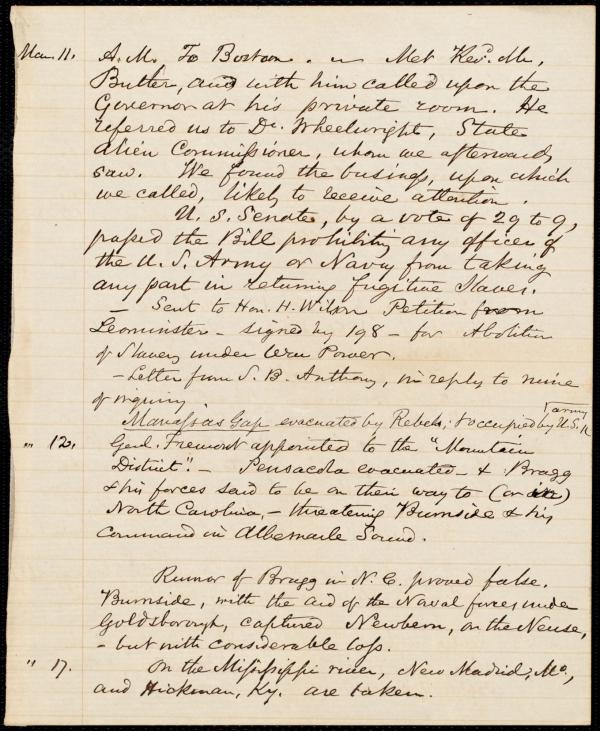 Mar. 11. A.M. To Boston. — Met Rev. Mr.
Butler, and with him called upon the
Governor at his private room. He
referred us to Dr. Wheelwright, State
Alien Commissioner, whom we afterwards
saw. We found the business, upon which
we called, likely to receive attention.
U. S. Senate, by a vote of 29 to 9,
passed the Bill prohibiting any officer of
the U. S. Army or Navy from taking
any part in returning fugitive slaves.
— Sent to Hon. H. Wilson Petition from
Leominster — signed by 198 — for Abolition
of Slavery under War Power.
— Letter from S. B. Anthony, in reply to mine
of inquiry.
Manassas Gap evacuated by Rebels, & occupied by U.S. army
" 12. Genl. Fremont appointed to the "Mountain
District". — Pensacola evacuated — & Bragg
& his forces said to be on their way to (or in)
North Carolina, — threatening Burnside & his
command in Albemarle Sound.
Rumor of Bragg in N. C. proved false.
Burnside, with the aid of the Naval forces under
Goldsborough, captured Newbern, on the Neuse,
— but with considerable loss.
" 17. On the Mississippi river, New Madrid, Mo.,
and Hickman, Ky. are taken.